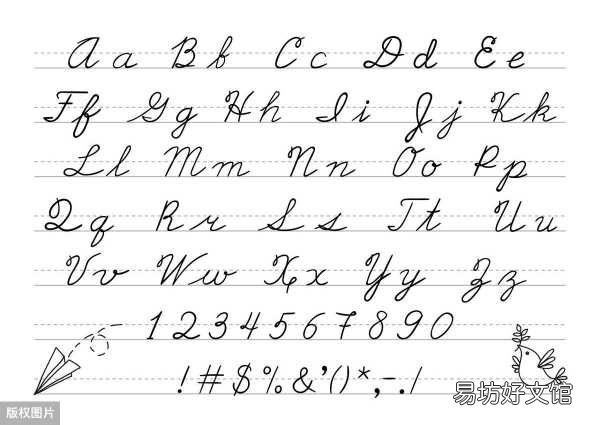 A a B b C c D d E e
F f G g H h I i J j K k
L l M m N n O o P p
Q q R r S s T t U u
V v W w X x Y y Z z
1 2 3 4 5 6 7 8 9 0
! # $ % & ' ( ) * , - . /
易坊好文馆
版权图片